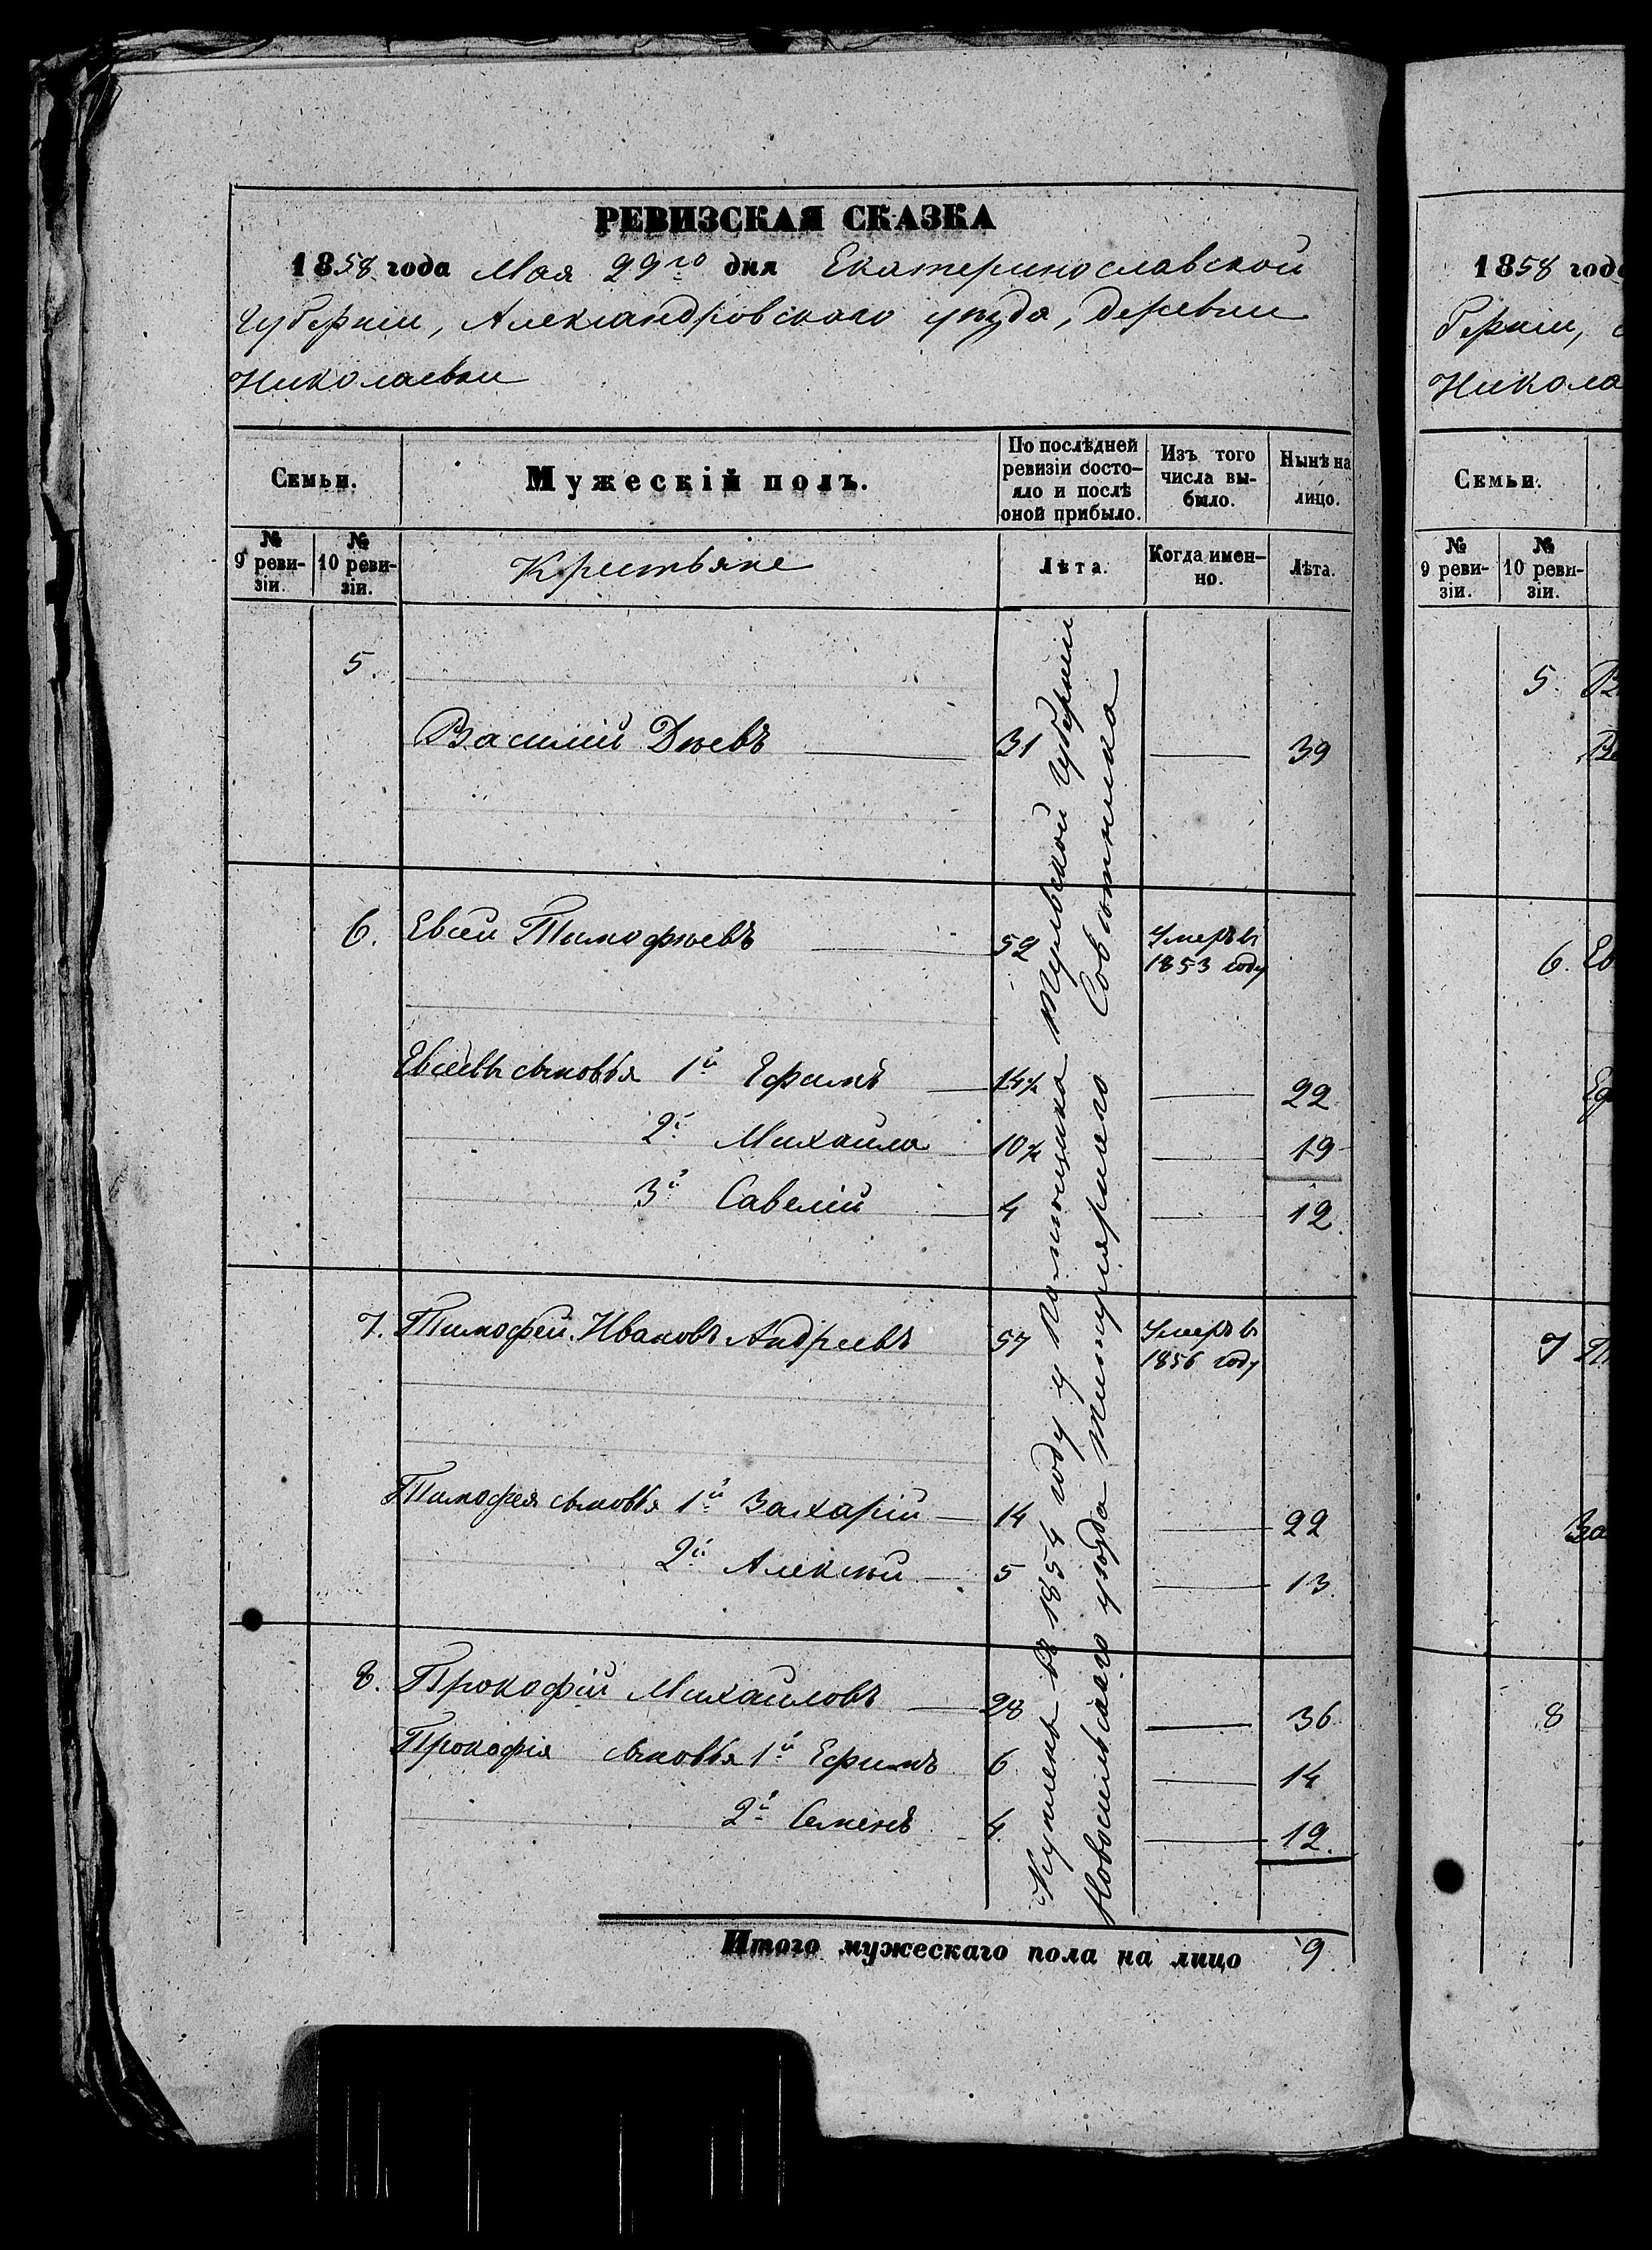 РЕВИЗСКАЯ СКАЗКА
1858 года Мая 29го дня Екатеринославской
Губерніи, Александровскаго уѣзда, деревни
Николаевки
Семьи.
Мужескій полъ.
По послѣдней
ревизіи состо-
яло и послѣ
оной прибыло.
Изъ того
числа вы-
было.
Нынѣ на
лицо.
№
9 реви-
зіи.
№
10 реви-
зіи.
Крестьяне
Лѣта.
Когда имен-
но.
Лѣта.
5.
Василій 31 39
6. Евсей Тимофѣевъ 52 Умеръ въ
1853 году
Евсеевы сыновья 1й Ефимъ 14½ 22
2й Михайла 10½ 19
3й Савелій 4 12.
7. Тимофей Ивановъ Андреевъ 57 Умеръ въ
1856 году
Тимофея сыновья 1й Захарій 14 22
2й Алексѣй 5 13.
8. Прокофій Михайловъ 28 36
Прокофія сыновья 1й Ефимъ 6 14
2й Семенъ 4. 12.
Куплены въ 1854 году у помѣщика Тульской Губерніи
Новосильскаго уѣзда Титулярнаго Совѣтника
Итого мужескаго пола на лицо 9.
1858 год
берніи,
Никола
Семьи.
№
9 реви-
зіи.
№
10 реви-
зіи.
5.
6. Ев
7
За
8